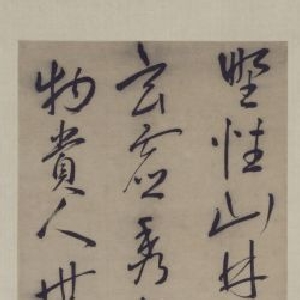 野性山林
玄虚秀
物貴人世